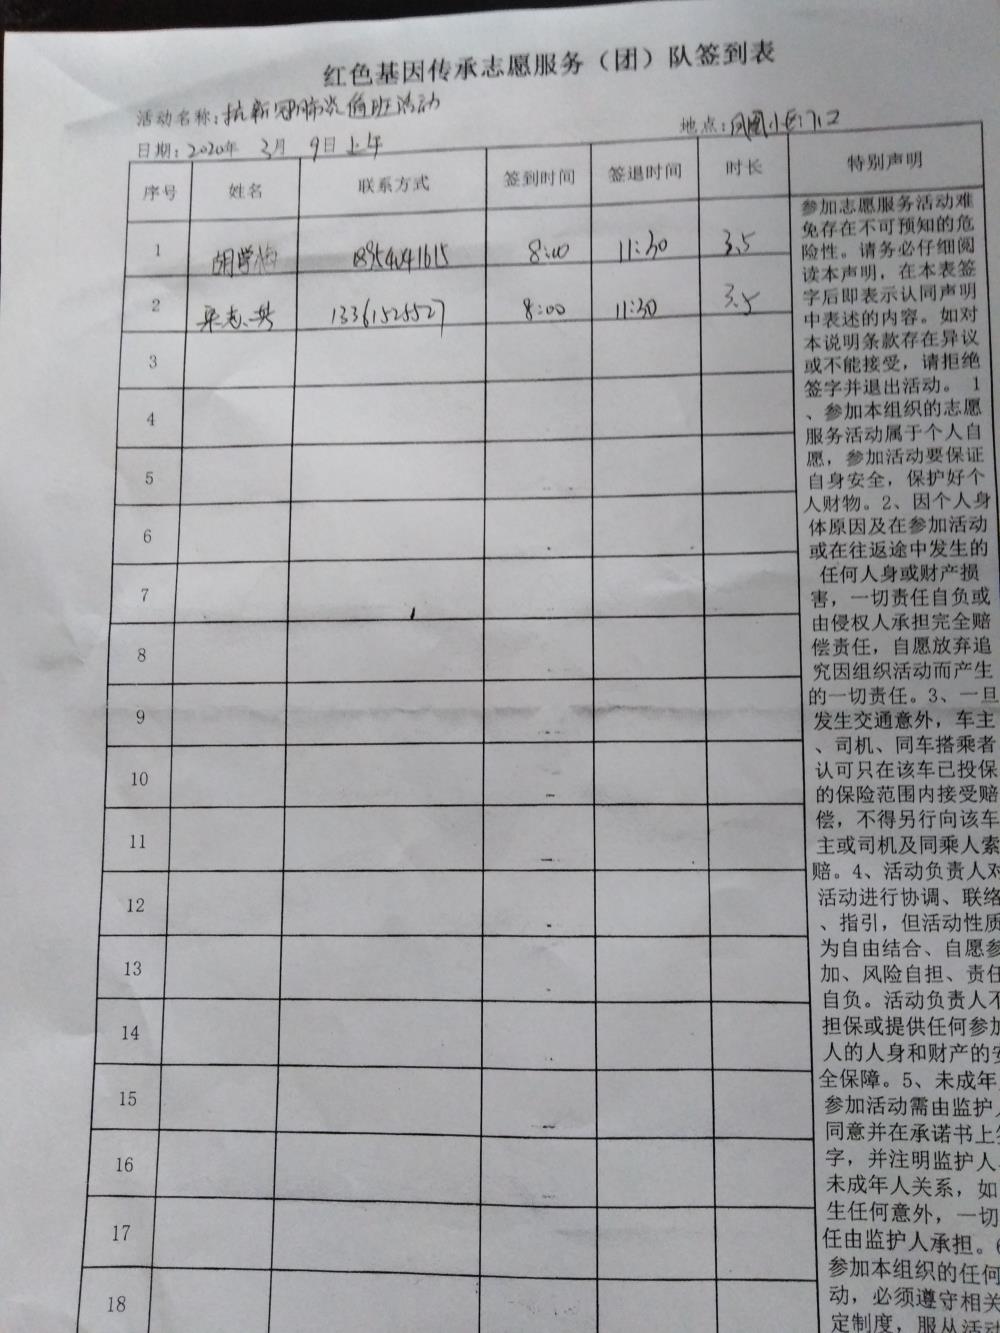 红色基因传承志愿服务（团）队签到表
活动名称：抗新冠肺炎值班活动
地点：凤凰小区门口
日期：2020年 3月 9日 上午
序号 姓名 联系方式 签到时间 签退时间 时长 特别声明
1 胡学梅 8:00 11:30 3.5
2 13361525527 8:00 11:30 3.5
3
4
5
6
7
8
9
10
11
12
13
14
15
16
17
18
参加志愿服务活动难
免存在不可预知的危
险性。请务必仔细阅
读本声明，在本表签
字后即表示认同声明
中表述的内容。如对
本说明条款存在异议
或不能接受，请拒绝
签字并退出活动。 1
、参加本组织的志愿
服务活动属于个人自
愿，参加活动要保证
自身安全，保护好个
人财物。2、因个人身
体原因及在参加活动
或在往返途中发生的
任何人身或财产损
害，一切责任自负或
由侵权人承担完全赔
偿责任，自愿放弃追
究因组织活动而产生
的一切责任。3、一旦
发生交通意外，车主
、司机、同车搭乘者
认可只在该车已投保
的保险范围内接受赔
偿，不得另行向该车
主或司机及同乘人索
赔。4、活动负责人对
活动进行协调、联络
、指引，但活动性质
为自由结合、自愿参
加、风险自担、责任
自负。活动负责人不
担保或提供任何参加
人的人身和财产的安
全保障。5、未成年
参加活动需由监护人
同意并在承诺书上签
字，并注明监护人
未成年人关系，如
生任何意外，一切
任由监护人承担。6
参加本组织的任何
动，必须遵守相关
定制度，服从活动